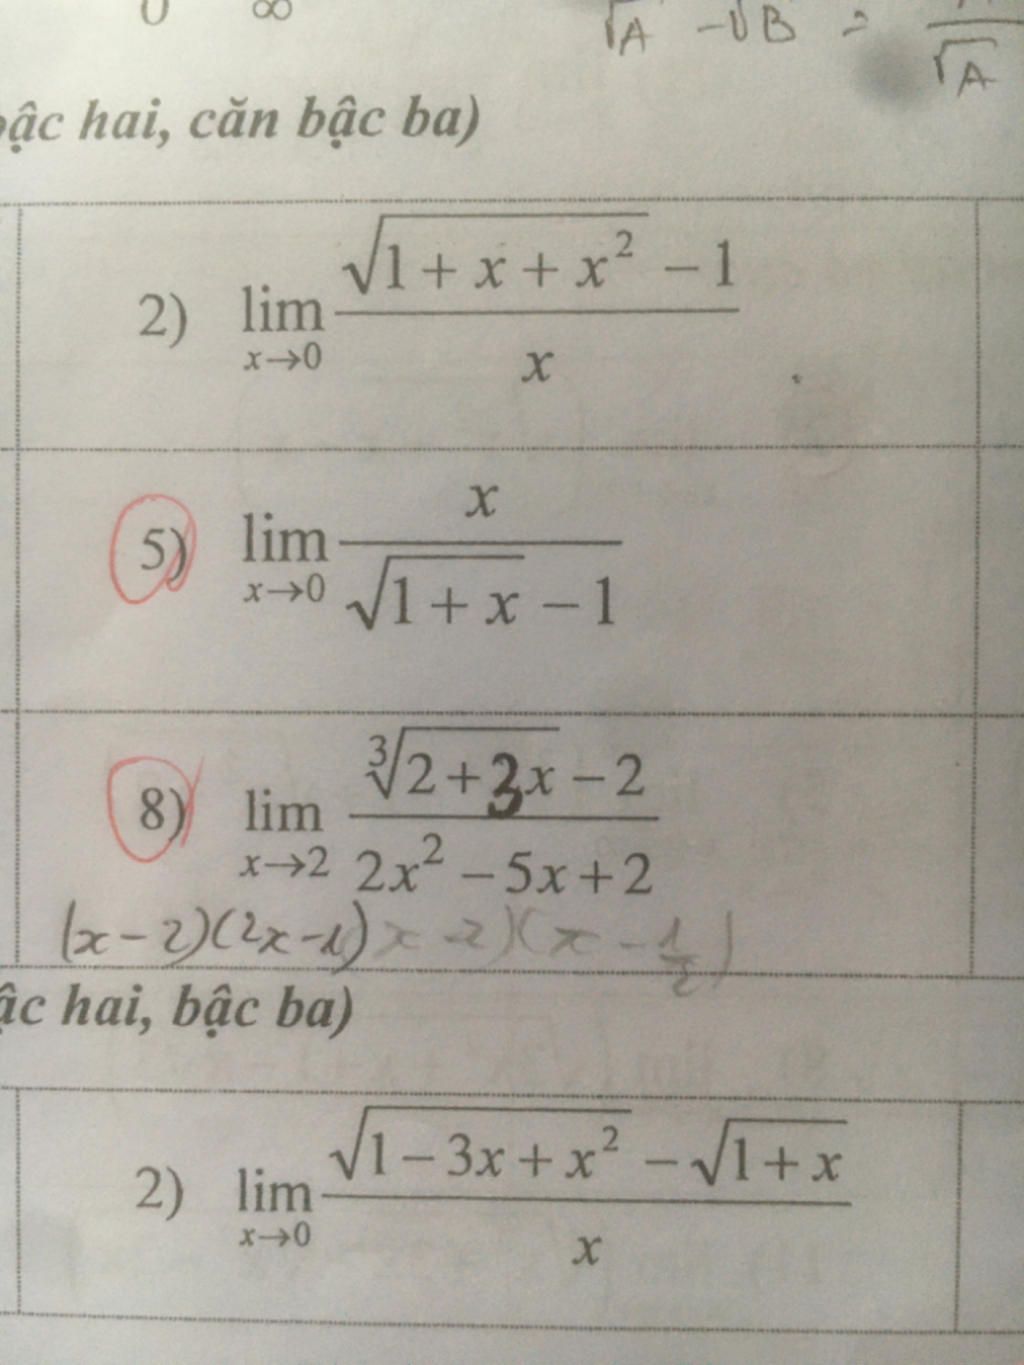 0 ∞ √A - √B = A / √A
bậc hai, căn bậc ba)
2) lim x→0 (√(1 + x + x²) − 1) / x
5) lim x→0 x / (√(1 + x) − 1)
8) lim x→2 (∛(2 + 3x) − 2) / (2x² − 5x + 2)
(x − 2)(2x − 1) x − 2)(x − 1/2)
bậc hai, bậc ba)
2) lim x→0 (√(1 − 3x + x²) − √(1 + x)) / x